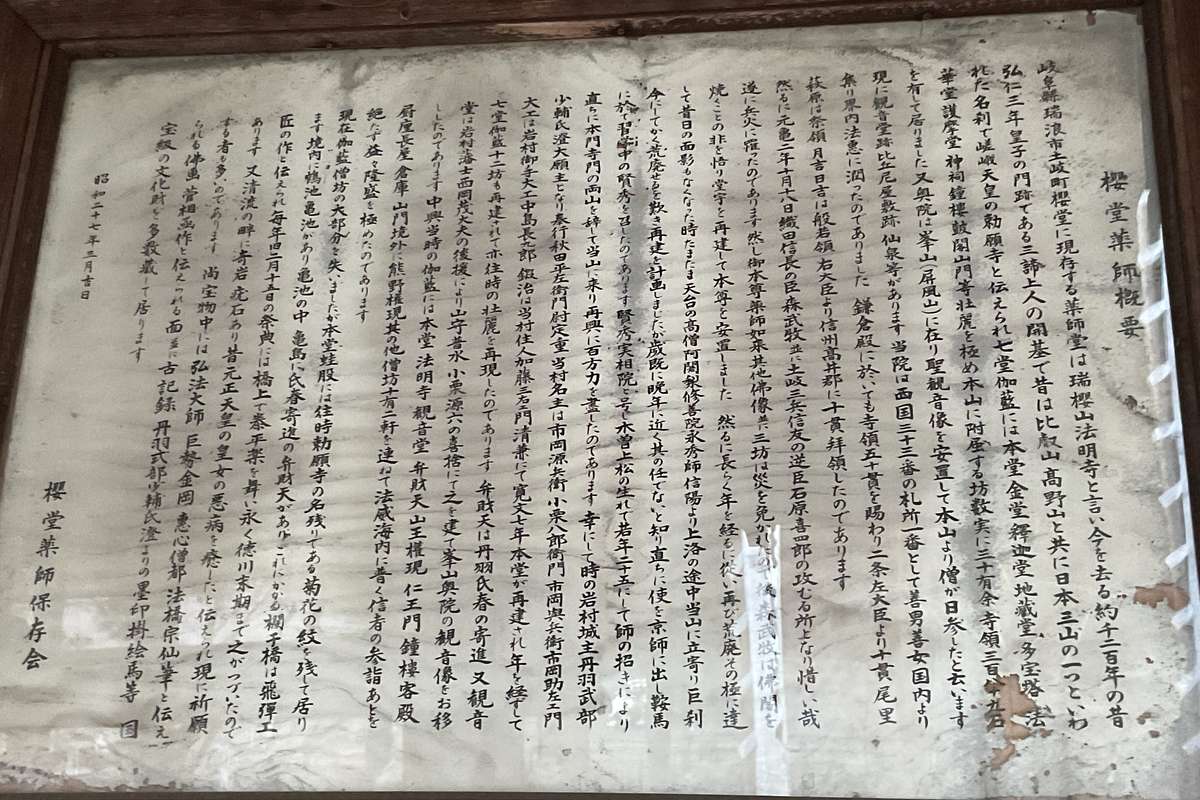 櫻堂薬師概要
岐阜縣瑞浪市土岐町櫻堂に現存する薬師堂は瑞櫻山法明寺と言い今を去る約千二百年の昔
弘仁三年皇子の門跡である三諦上人の開基で昔は比叡山高野山と共に日本三山の一つといわ
れた名刹で嵯峨天皇の勅願寺と伝えられ七堂伽藍には本堂金堂釋迦堂地蔵堂多宝塔法
華堂護摩堂神祠鐘樓鼓閣山門等壮麗を極め本山に附居する坊数実に三十有余寺領三百 九石
を有して居りました又奥院は峯山(屏風山)に在り聖観音像を安置して本山より僧が日参したと云います
現に観音堂跡比丘尼屋敷跡仙泉等があります当院は西国三十三番の札所一番として善男善女国内より
集り界内法恵に潤ったのでありました 鎌倉殿に於いても寺領五十貫を賜わり二条左大臣より十貫尾里
萩原は祭領月吉日吉は般若領右大臣より信州高井郡に十貫拜領したのであります
然るに元亀二年十月八日織田信長の臣森武牧並に土岐三兵信友の逆臣石原喜四郎の攻むる所となり惜しい哉
遂に兵火に罹ったのであります然し御本尊薬師如来其他佛像並に三坊は災を免かれたので後森武牧は佛閣を
焼くことの非を悟り堂宇を再建して本尊を安置しました 然るに長らく年を経るに從い再び荒廃その極に達
して昔日の面影もなくなった時たまたま天台の高僧阿闍梨修善院永秀師信陽より上洛の途中当山に立寄り巨刹
今にしてかく荒廃せるを歎き再建を計画しましたが歳既に晩年に近く其の任でないと知り直ちに使を京師に出し鞍馬
に於て習學中の賢秀を召したのであります賢秀実相院と号し木曽上松の生れで若年二十五にして師の招きにより
直ちに本門寺門の両山を辞して当山に来り再興に百方力を盡したのであります 幸にして時の岩村城主丹羽武部
少輔氏澄大願主となり奉行秋田平左衛門尉定重当村名主は市岡源兵衛小栗八郎衛門市岡與兵衛市岡助左ェ門
大工は岩村御寺大工中島長九郎 鍛治は当村住人加藤三右ェ門清兼にて寛文七年本堂が再建され年を経ずして
七堂伽藍十二坊も再建されて亦往時の壮麗を再現したのであります 弁財天は丹羽氏春の寄進又観音
堂は岩村藩士西岡茂大夫の後援により山守昔水小栗源六の喜捨にて之を建て峯山奥院の観音像をお移
ししたのであります 中興当時の伽藍には本堂法明寺観音堂弁財天山王權現仁王門鐘樓客殿
厨座長屋倉庫山門境外に熊野權現其の他僧坊十有二軒を連ねて法威海内に普く信者の参詣あとを
絶たず益々隆盛を極めたのであります
現在伽藍僧坊の大部分を失いましたが本堂蛙股には往時勅願寺の名残りである菊花の紋を残して居り
ます境内に鶴池亀池があり亀池の中亀島に氏春寄進の弁財天がありこれにかかる欄干橋は飛彈工
匠の作と伝えられ毎年旧二月十五日の祭典には橋上で泰平楽を舞い永く徳川末期まで之がつづいたので
あります 又清流の畔に奇岩 石あり昔元正天皇の皇女の悪病を癒したと伝えられ現に祈願
する者も多いのであります 尚宝物中には弘法大師巨勢金岡惠心僧都法橋宗仙筆と伝え
られる佛画菅相画作と伝えられる面並に古記録丹羽式部少輔氏澄よりの墨印掛絵馬等國
宝級の文化財を多数藏して居ります
昭和二十七年三月吉日
櫻堂薬師保存会